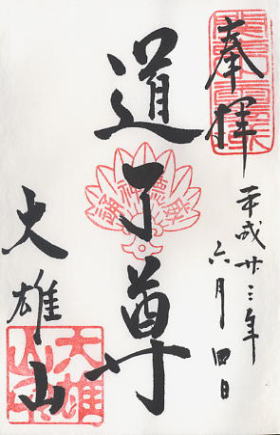 奉拝
平成廿三年
六月四日
道了尊
大雄山